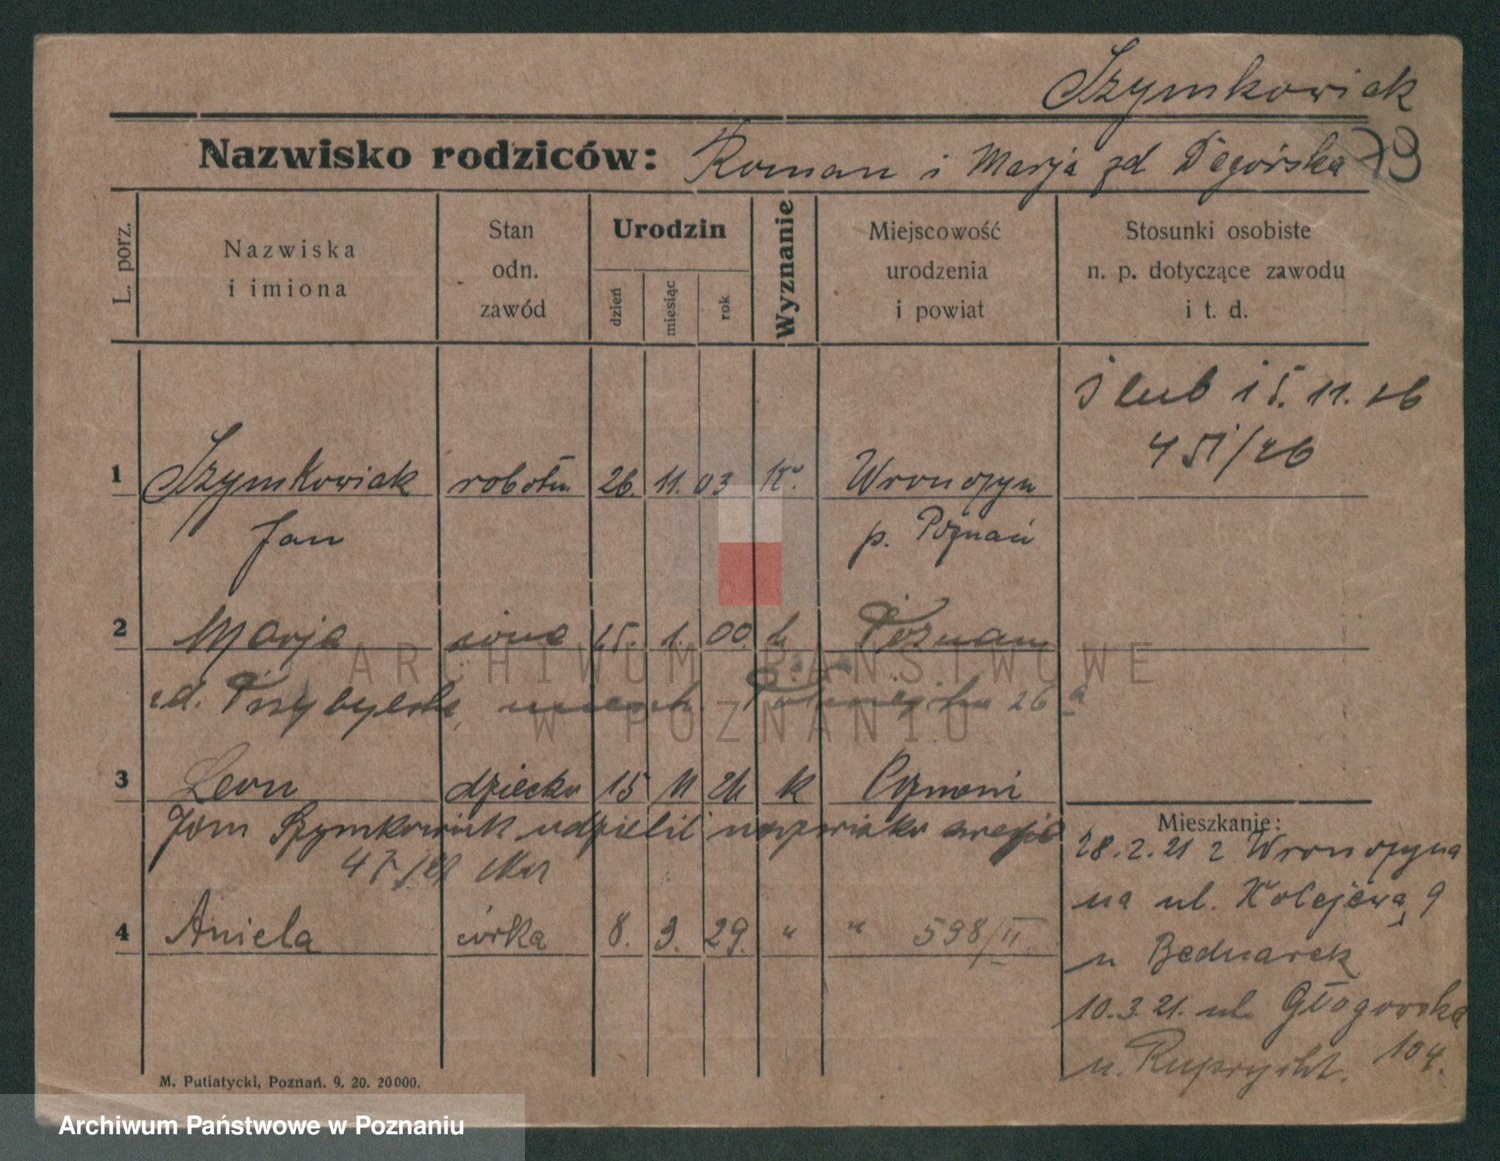 Szymkowiak
Nazwisko rodziców: Roman i Marja zd Degórska
79
L. porz.
Nazwiska
i imiona
Stan
odn.
zawód
Urodzin
dzień
miesiąc
rok
Wyznanie
Miejscowość
urodzenia
i powiat
Stosunki osobiste
n. p. dotyczące zawodu
i t. d.
ślub 15. 11. 26
451/26
1 Szymkowiak robotn. 26. 11. 03 k. Wronczyn
Jan p. Poznań
2 Marja żona 15. 1. 00. k. Poznań
zd. Przybylska, 26 a
3 Leon dziecko 15 11 24 k Poznań
Jan Szymkowiak udzielił nazwiska swego
4 Aniela córka 8. 9. 29. " " 598/II
Mieszkanie:
28.2.21 z Wronczyna
na ul. Kolejową 9
u Bednarek
10.3.21. ul. Głogowska
104.
u. Ruprycht.
M. Putiatycki, Poznań. 9. 20. 20000.
ARCHIWUM PAŃSTWOWE
W POZNANIU
Archiwum Państwowe w Poznaniu